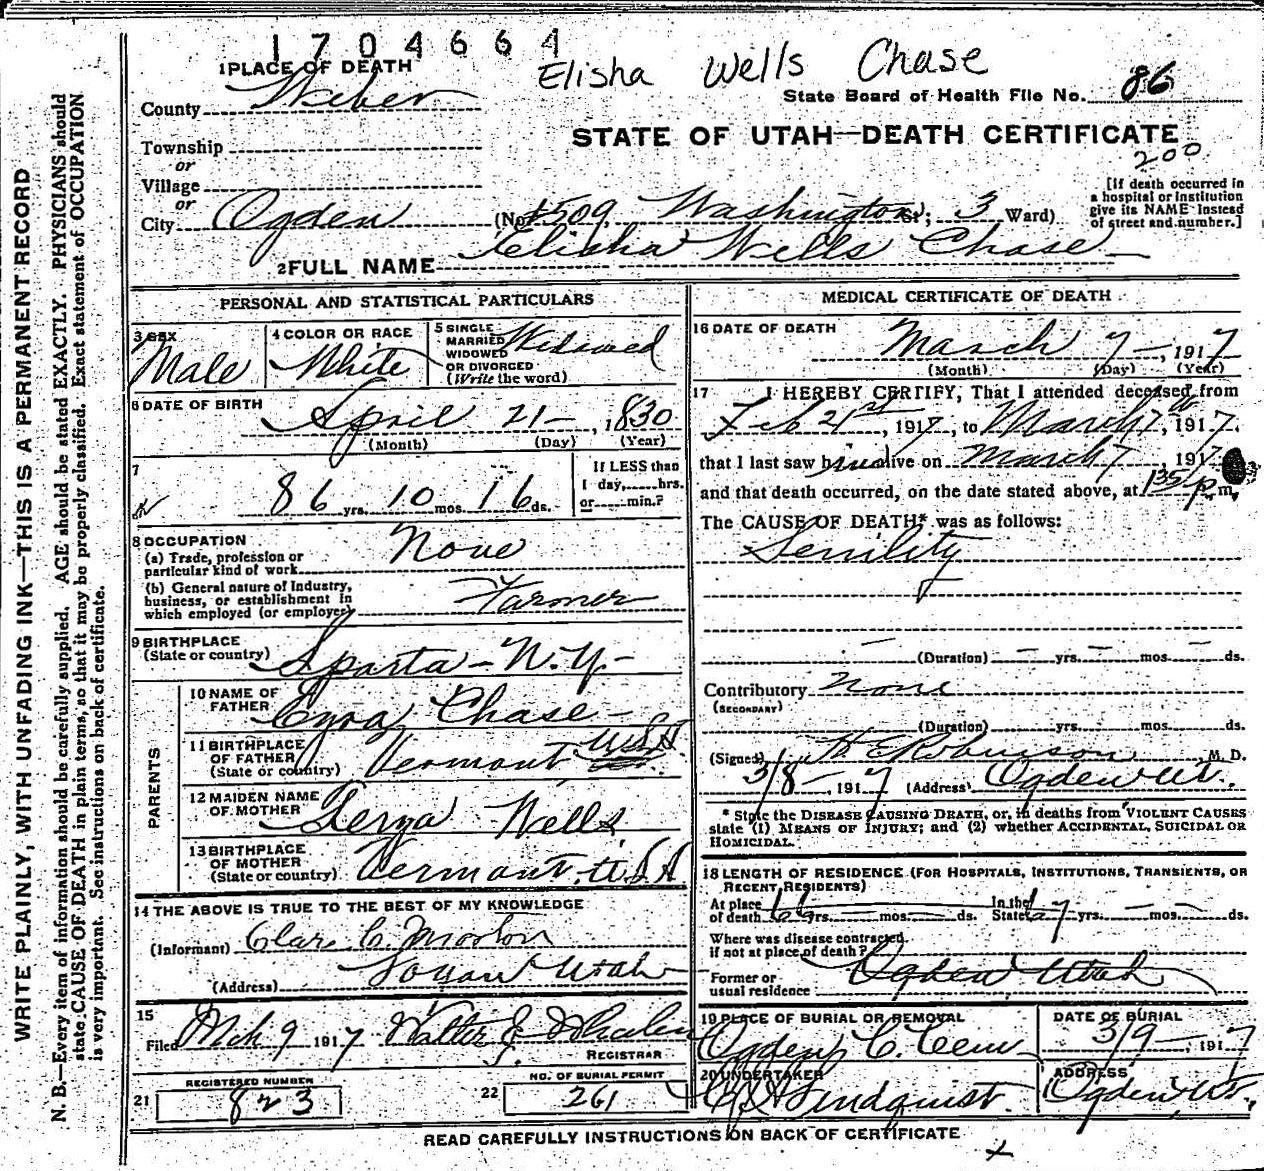 1704664
Elisha Wells Chase
1 PLACE OF DEATH
County Weber
State Board of Health File No. 86
STATE OF UTAH—DEATH CERTIFICATE
200
Township
or
Village
or
City Ogden (No. 1509, Washington St; 3 Ward)
[If death occurred in
a hospital or institution
give its NAME instead
of street and number.]
2 FULL NAME Elisha Wells Chase
PERSONAL AND STATISTICAL PARTICULARS
3 SEX
Male
4 COLOR OR RACE
White
5 SINGLE
MARRIED
WIDOWED
OR DIVORCED
(Write the word)
Widowed
6 DATE OF BIRTH
April 21 —, 1830
(Month) (Day) (Year)
7
86 yrs. 10 mos. 16 ds.
If LESS than
1 day,......hrs.
or......min.?
8 OCCUPATION
(a) Trade, profession or
particular kind of work None
(b) General nature of Industry,
business, or establishment in
which employed (or employer) Farmer
9 BIRTHPLACE
(State or country) Sparta — N.Y. —
PARENTS
10 NAME OF
FATHER Ezra Chase —
11 BIRTHPLACE
OF FATHER
(State or country) Vermont, USA
12 MAIDEN NAME
OF MOTHER Wells
13 BIRTHPLACE
OF MOTHER
(State or country) Vermont. U.S.A
14 THE ABOVE IS TRUE TO THE BEST OF MY KNOWLEDGE
(Informant) C.
(Address) Utah
15
Filed Mch 9 1917 Walter J. Whalen
REGISTRAR
21
REGISTERED NUMBER
823
22
NO. OF BURIAL PERMIT
261
MEDICAL CERTIFICATE OF DEATH
16 DATE OF DEATH
March 7 —, 1917
(Month) (Day) (Year)
17 I HEREBY CERTIFY, That I attended deceased from
Feb 21st, 1917, to March 7th, 1917,
that I last saw him alive on March 7, 1917
and that death occurred, on the date stated above, at 135 p.m.
The CAUSE OF DEATH* was as follows:
Senility
(Duration) — yrs. — mos. — ds.
Contributory None
(SECONDARY)
(Duration) yrs. mos. ds.
(Signed) H E Robinson M. D.
3/8 —, 1917 (Address) Ogden Ut.
* State the DISEASE CAUSING DEATH, or, in deaths from VIOLENT CAUSES
state (1) MEANS OF INJURY; and (2) whether ACCIDENTAL, SUICIDAL OR
HOMICIDAL.
18 LENGTH OF RESIDENCE (FOR HOSPITALS, INSTITUTIONS, TRANSIENTS, OR
RECENT RESIDENTS)
At place
of death yrs. mos. ds.
In the
State yrs. — mos. — ds.
Where was disease contracted,
if not at place of death?
Former or
usual residence Ogden Utah
19 PLACE OF BURIAL OR REMOVAL
Ogden C. Cem
DATE OF BURIAL
3/9 —, 1917
20 UNDERTAKER
Lindquist.
ADDRESS
Ogden, Ut.
READ CAREFULLY INSTRUCTIONS ON BACK OF CERTIFICATE
WRITE PLAINLY, WITH UNFADING INK—THIS IS A PERMANENT RECORD
N. B.—Every item of information should be carefully supplied. AGE should be stated EXACTLY. PHYSICIANS should
state CAUSE OF DEATH in plain terms, so that it may be properly classified. Exact statement of OCCUPATION
is very important. See instructions on back of certificate.